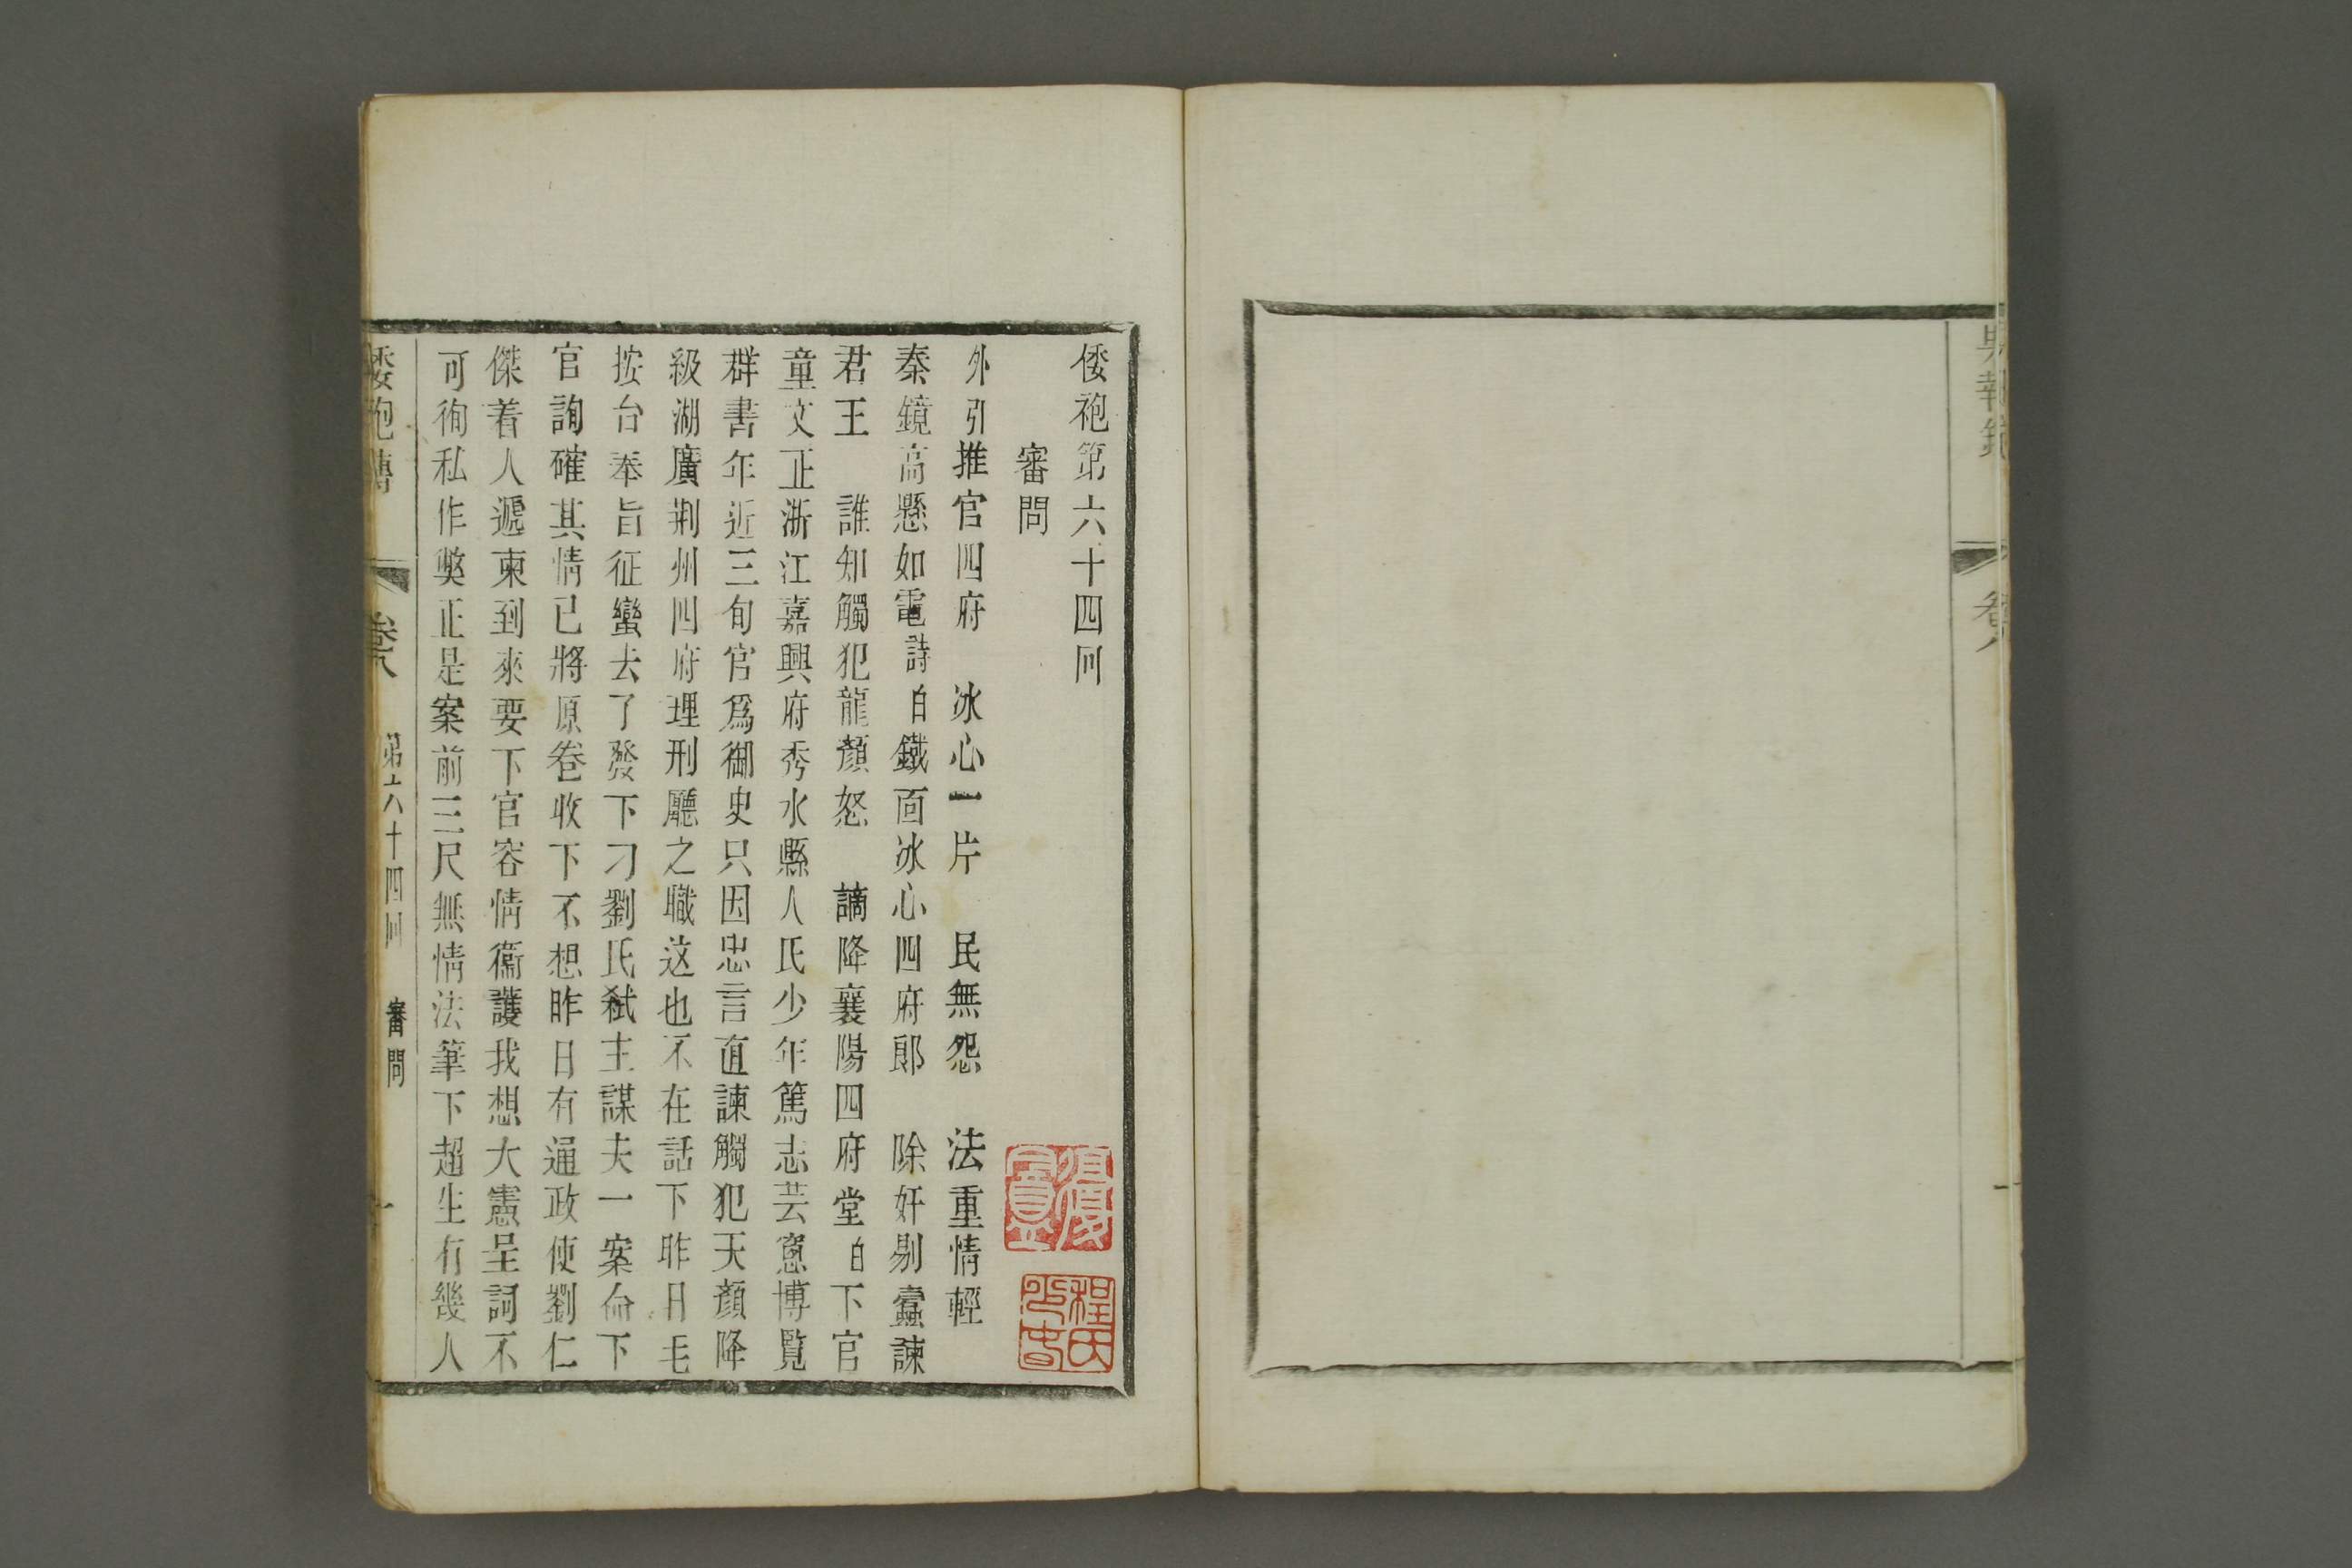 果報錄
卷八
一
倭袍第六十四回
審問
外引推官四府　冰心一片　民無怨　法重情輕
秦鏡高懸如電詩白鐵面冰心四府郞　除奸剔蠹諫
君王　誰知觸犯龍顏怒　謫降襄陽四府堂白下官
童文正浙江嘉興府秀水縣人氏少年篤志芸窓博覽
群書年近三旬官爲御史只因忠言直諫觸犯天顏降
級湖廣荆州四府理刑廳之職这也不在話下昨日毛
按台奉旨征蠻去了發下刁劉氏弒主謀夫一案命下
官詢確其情已將原卷收下不想昨日有通政使劉仁
傑着人遞柬到來要下官容情衞護我想大憲呈詞不
可徇私作獘正是案前三尺無情法筆下超生有幾人
倭袍傳
卷八
第六十四回
審問
一
程氏